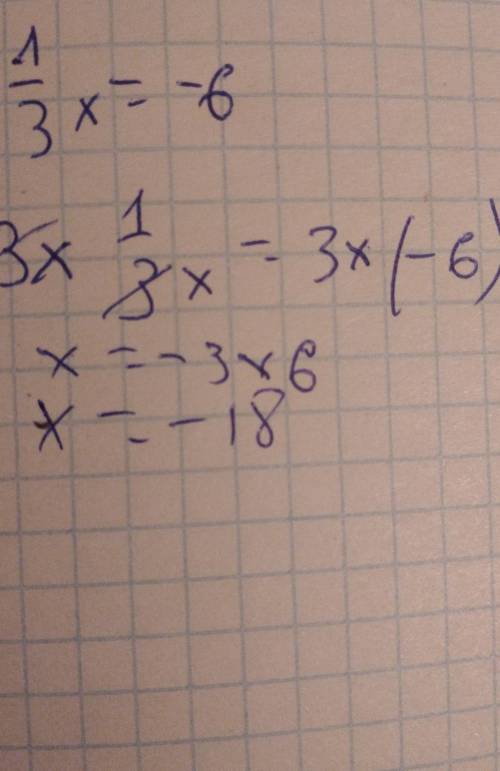 1/3 x = -6
3x 1/3 x = 3x(-6)
x = -3x6
x = -18